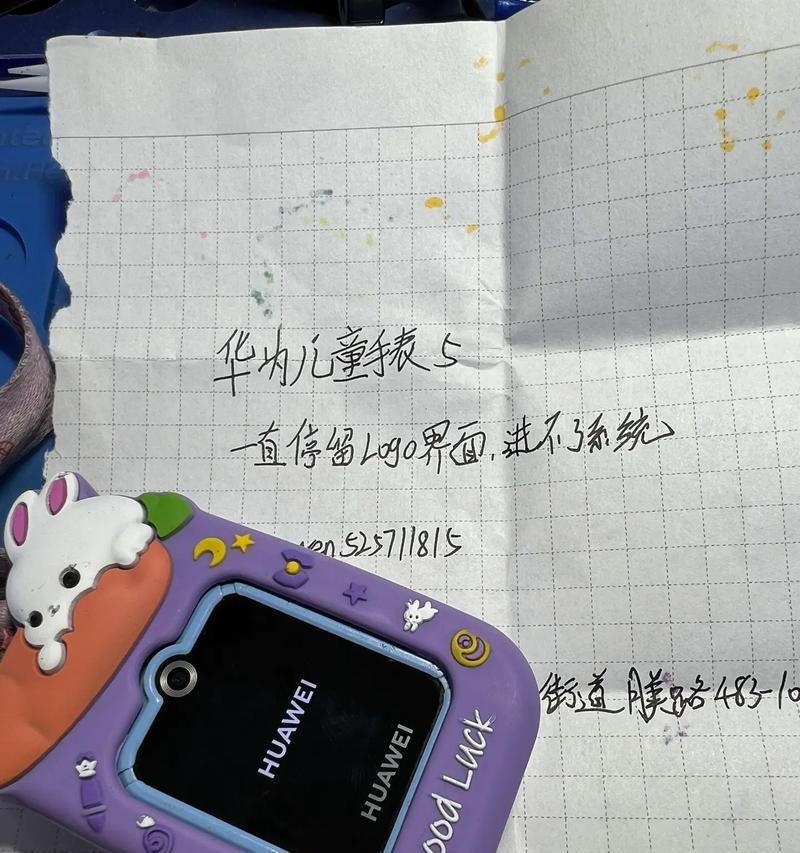 华为儿童手表5
一直停留Logo界面,进不了系统
en525711815
街道 路483-10
HUAWEI
HUAWEI
ood Luck